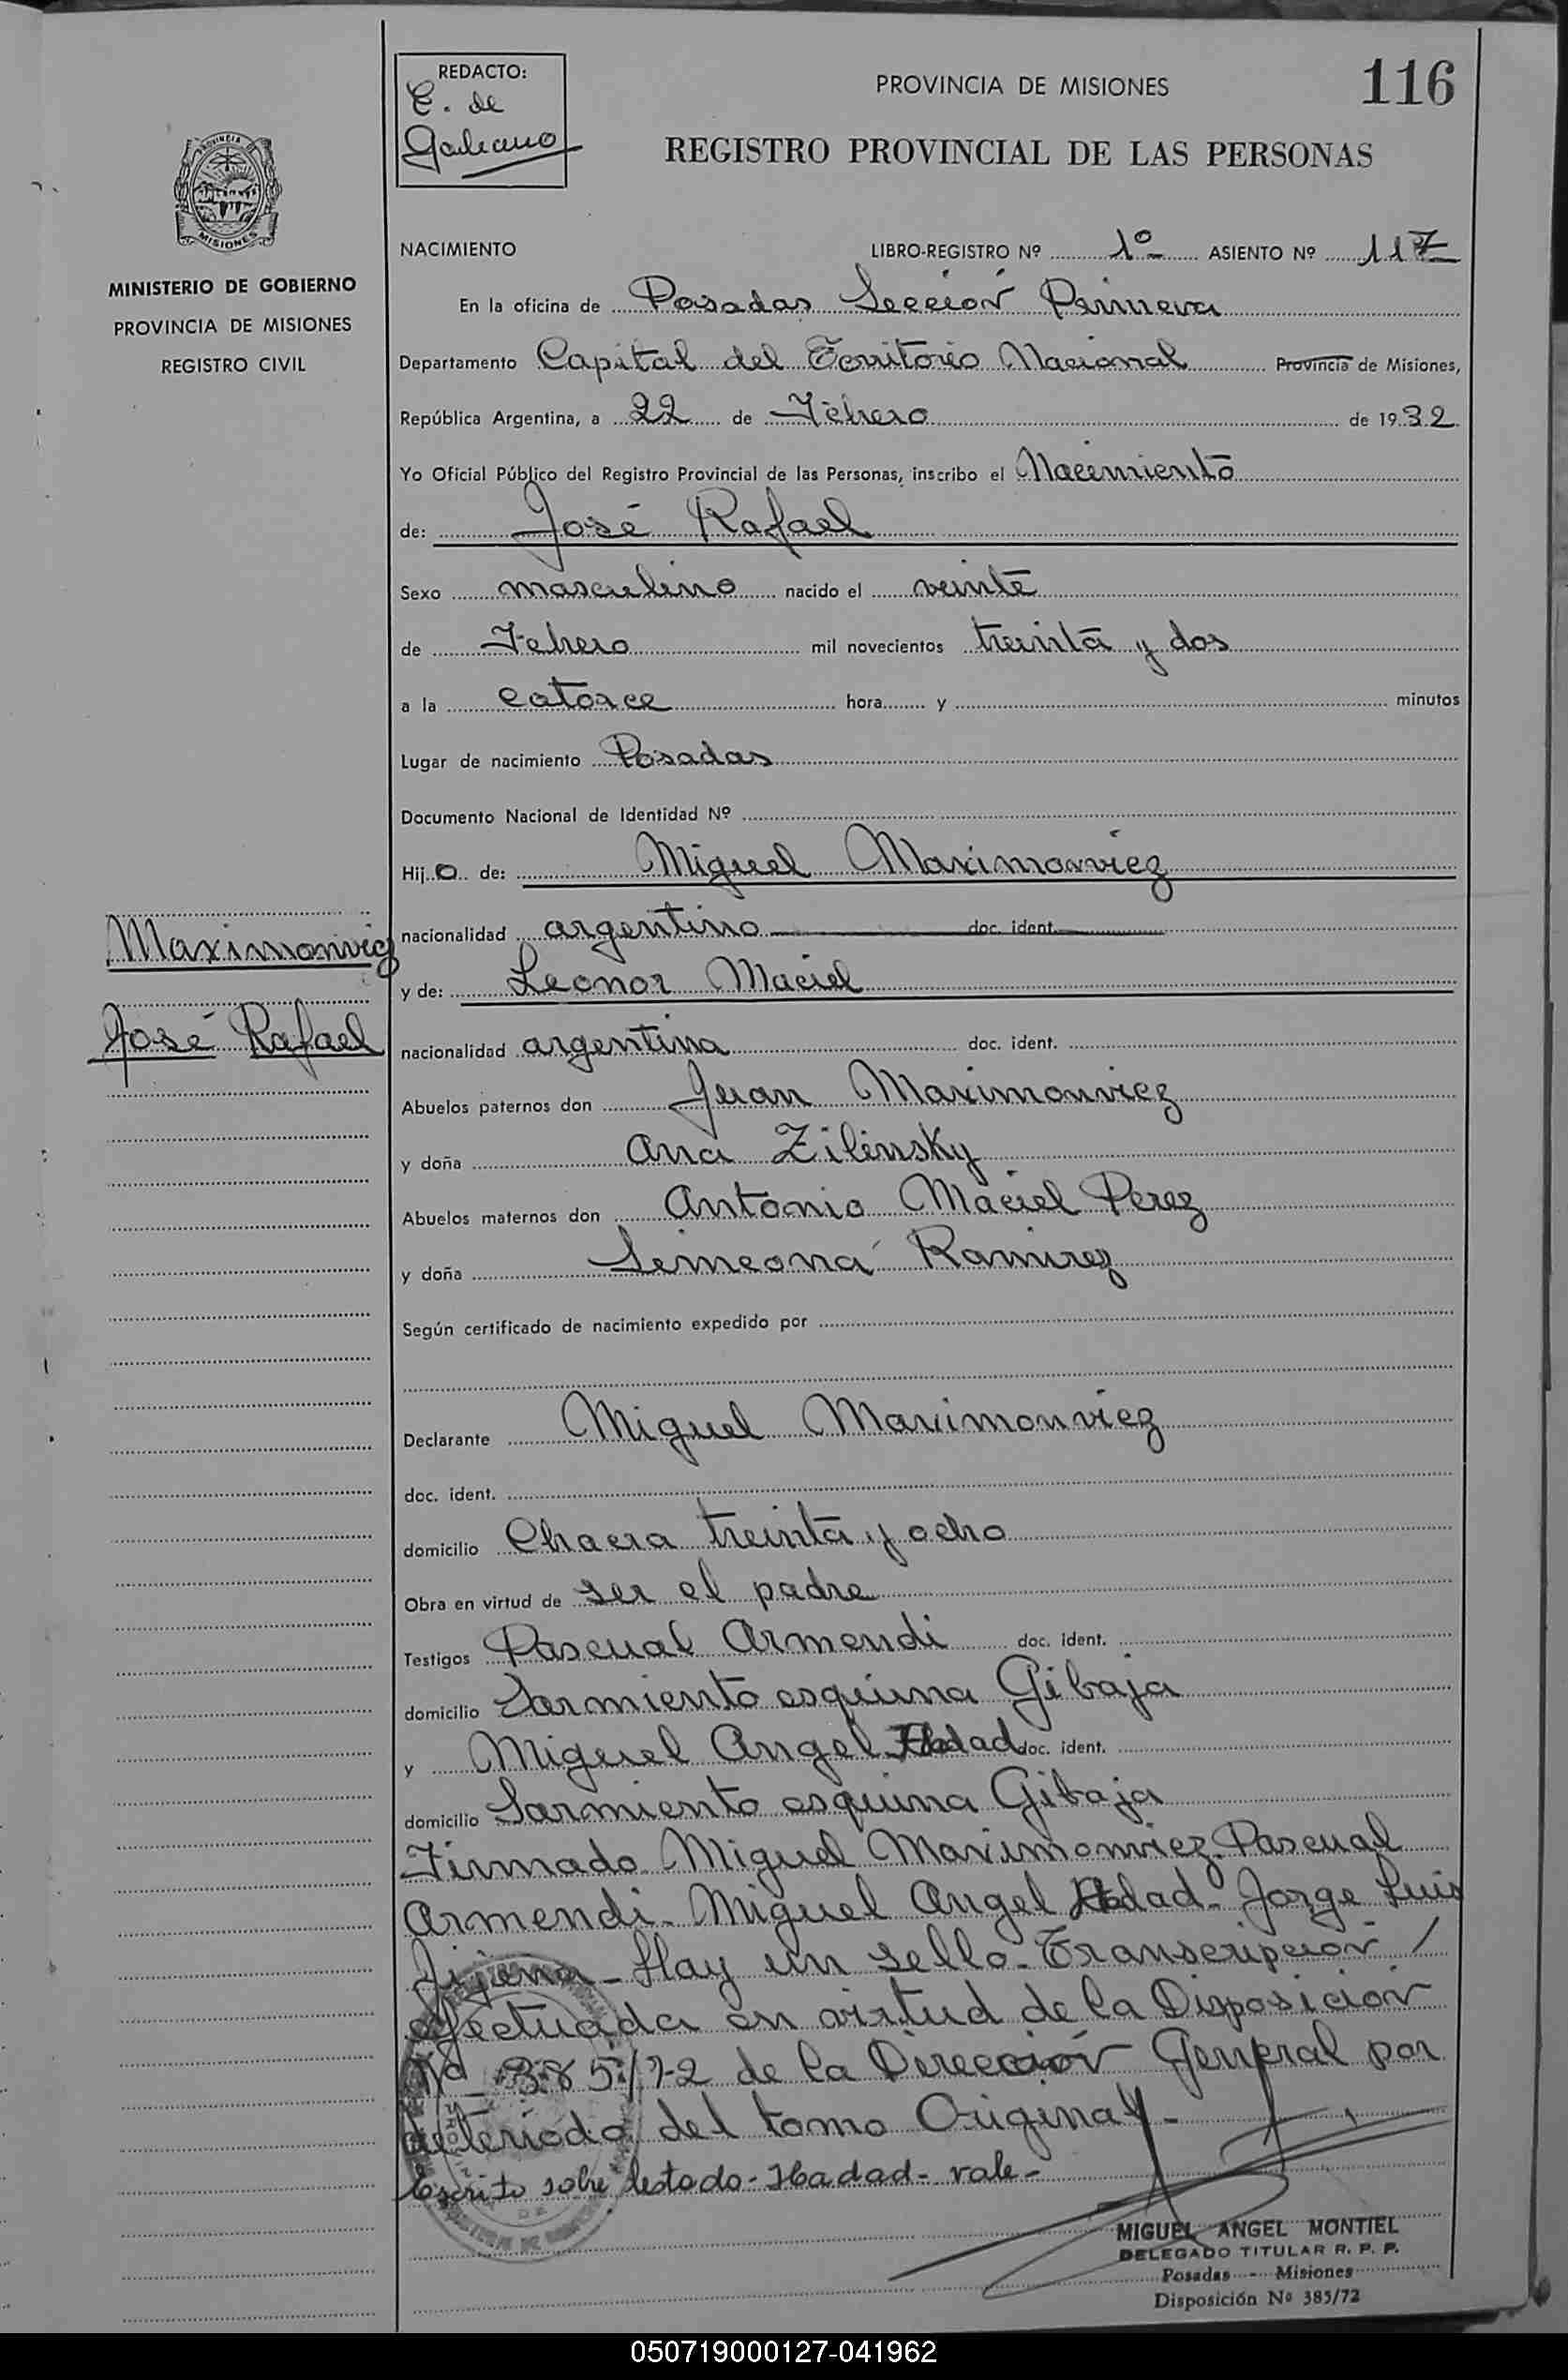 REDACTO:
E. de
Galeano
PROVINCIA DE MISIONES
116
REGISTRO PROVINCIAL DE LAS PERSONAS
PROVINCIA DE
MISIONES
MINISTERIO DE GOBIERNO
PROVINCIA DE MISIONES
REGISTRO CIVIL
NACIMIENTO LIBRO-REGISTRO Nº 1º ASIENTO Nº 117
En la oficina de Posadas Sección Primera
Departamento Capital del Territorio Nacional Provincia de Misiones,
República Argentina, a 22 de Febrero de 1932
Yo Oficial Público del Registro Provincial de las Personas, inscribo el Nacimiento
de: José Rafael
Sexo masculino nacido el veinte
de Febrero mil novecientos treinta y dos
a la catorce hora y minutos
Lugar de nacimiento Posadas
Documento Nacional de Identidad Nº
Hijo de: Miguel Maximonviez
nacionalidad argentino doc. ident.
Maximonviez
y de: Leonor Maciel
José Rafael
nacionalidad argentina doc. ident.
Abuelos paternos don Juan Maximonviez
y doña Ana Zilinsky
Abuelos maternos don Antonio Maciel Perez
y doña Simeona Ramirez
Según certificado de nacimiento expedido por
Declarante Miguel Maximonviez
doc. ident.
domicilio Chacra treinta y ocho
Obra en virtud de ser el padre
Testigos Pascual Armendi doc. ident.
domicilio Sarmiento esquina Gibaja
y Miguel Angel Hadad doc. ident.
domicilio Sarmiento esquina Gibaja
Firmado Miguel Maximonviez. Pascual
Armendi- Miguel Angel Hadad- Jorge Luis
Jijena- Hay un sello- Transcripción /
efectuada en virtud de la Disposición
Nº 385/72 de la Dirección General por
deteriodo del tomo Original-
Escrito sobre testado- Hadad- vale-
MIGUEL ANGEL MONTIEL
DELEGADO TITULAR R. P. P.
Posadas - Misiones
Disposición Nº 385/72
050719000127-041962